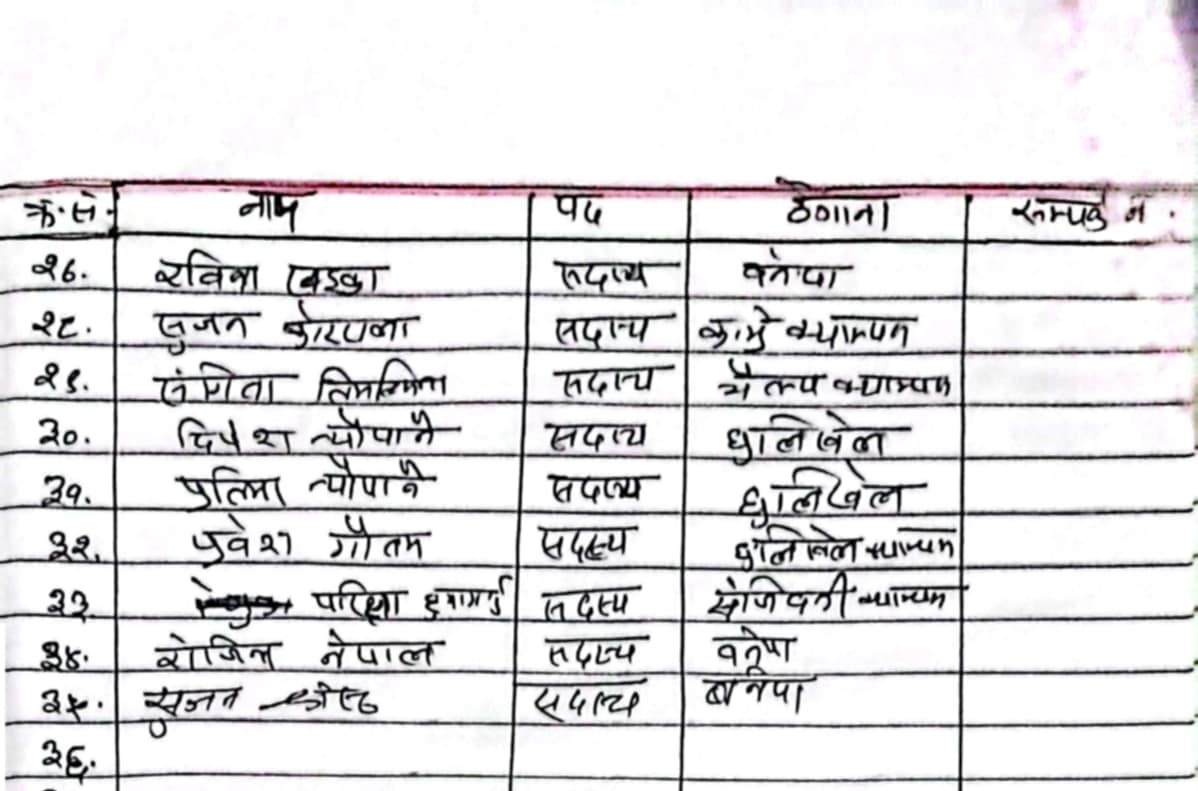 क्र.सं. नाम पद ठेगाना सम्पर्क नं.
२७. रविना खड्का सदस्य बनेपा
२८. सुजन सदस्य काभ्रे क्याम्पस
२९. संगिता तिमल्सिना सदस्य चैतन्य क्याम्पस
३०. दिपेश न्यौपाने सदस्य धुलिखेल
३१. प्रतिमा न्यौपाने सदस्य धुलिखेल
३२. प्रवेश गौतम सदस्य धुलिखेल क्याम्पस
३३ परिक्षा हुमागाई सदस्य संजिवनी क्याम्पस
३४. रोजिना नेपाल सदस्य बनेपा
३५. सुजन श्रेष्ठ सदस्य बनेपा
३६.